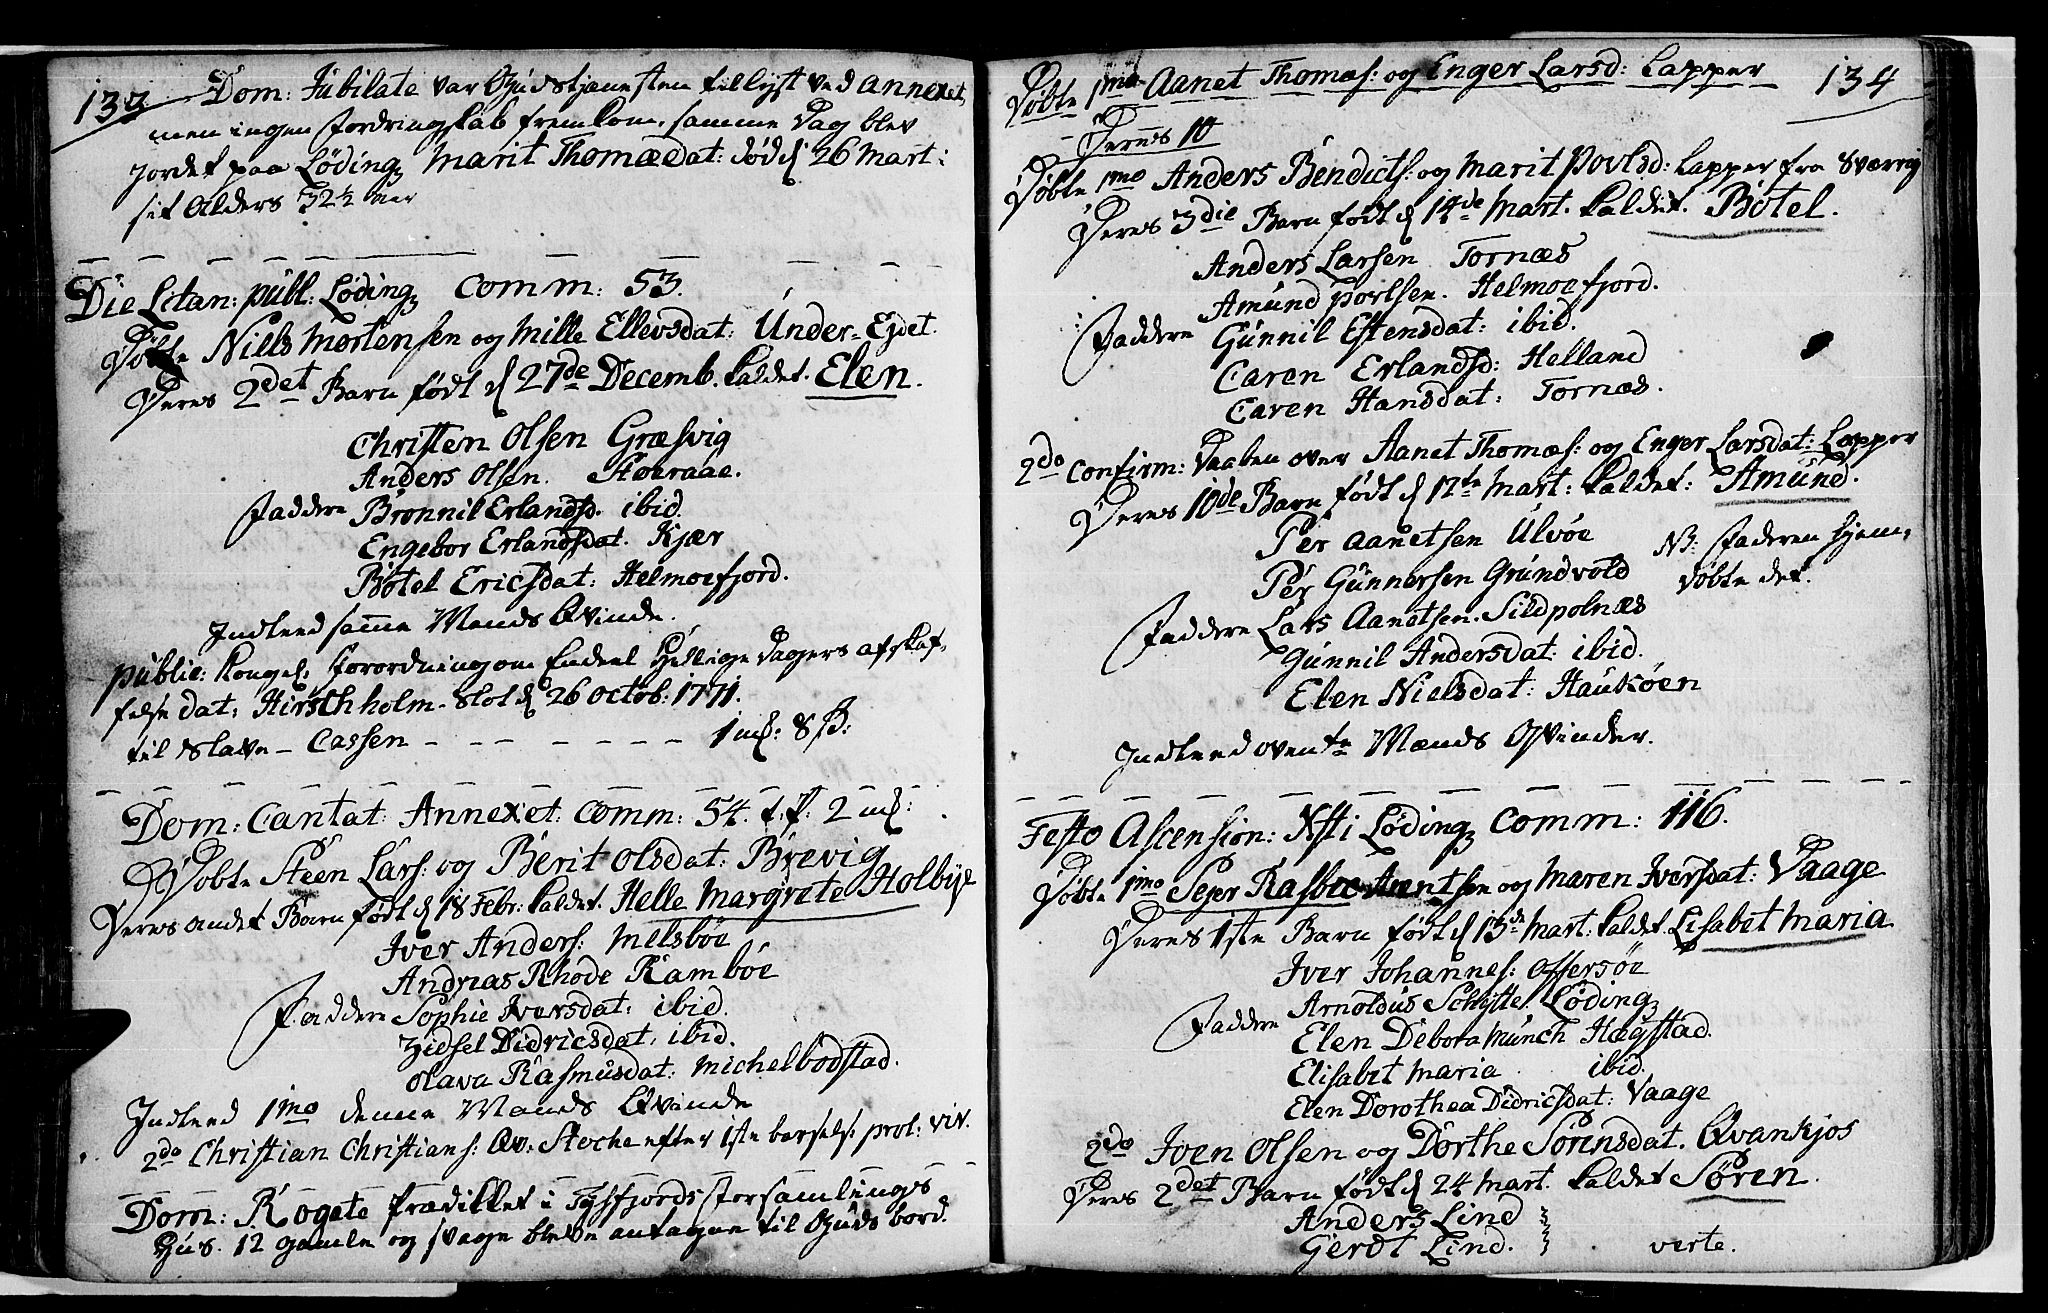 133 Dom: Jubilate var Gudstjenesten tillyst ved Annexet,
men ingen Jordringskab fremkom, samme Dag blev
jordet paa Løding Marit Thomædat: død d 26 Mart:
sit Alders 32½ Aar
Die Letan: publ: Løding Comm: 53.
Døbte Niells Mortensen og Mille Ellevsdat: Under-Ejdet.
Deres 2det Barn født d 27de Decemb. kaldet. Elen.
Christen Olsen Græsvig
Anders Olsen. Storaae.
Faddere Brønnil Erlandsd. ibid.
Engebor Erlandsdat. Kjær
Bótel Ericsdat: Helmocfjord.
Indleed samme Mands Qvinde.
public: Kongel: Forordning om Endeel Hellige Dagers afskaf-
felse dat: Hirschholm-Slot d 26 Octob: 1771.
til Slave-Cassen - - - - - - - 1 mk: 8 ß:
Dom: Cantat: Annexet Comm: 54. t. T. 2 mk:
Døbte Steen Lars: og Berit Olsdat: Brevig
Deres andet Barn født d 18 Febr: kaldet. Helle Margrete Holbye
Iver Anders: Melsbøe
Andrias Rhode Ramboe
Faddere Sophie Iversdat: ibid.
Zidsel Didricsdat, ibid.
Olava Rasmusdat: Michelbodstad.
Indleed 1mo denne Mands Qvinde
2do Christian Christians: Qv: Stoche efter 1ste barsels: prot: viv.
Dom: Rogate prædikket i Tysfjords forsamlings
Huus. 12 gamle og svage bleve antagne til Guds bord.
134
Døbte 1mo Aanet Thomas: og Enger Larsd: Lapper
Deres 10
Døbte 1mo Anders Bendicts: og Marit Povlsd: Lapper fra Sværrig
Deres 3die Barn født d 14de Mart. kaldet. Bótel.
Anders Larsen Tornæs
Amund Povlsen. Helmocfjord.
Faddere Gunnil Estensdat: ibid.
Caren Erlandsd: Helland
Caren Hansdat: Tornæs.
2do Confirm: Daaben over Aanet Thomæs: og Enger Larsdat: Lapper
Deres 10de Barn født d 12te Mart: kaldet: Amund.
Pér Aanetsen Ulvøe
Pér Gunnersen Grundvold
Faddere Lars Aanetsen. Sildpolnæs
Gunnil Andersdat: ibid.
Elen Nielsdat: Haukøen
NB: Faderen hjem-
døbte det.
Indleed ovente Mænds Qvinder.
Festo Ascension: Xsti Løding Comm: 116.
Døbte 1mo Sejer Rasboe Arentsen og Maren Iversdat: Vaage
Deres 1ste Barn født d 13de Mart: kaldet. Lisabet Maria
Iver Johannes: Offersøe
Faddere Arnoldus Schytte. Løding
Elen Debora Munch Hægstad.
Elisabet Maria ibid.
Elen Dorothea Didricsdat: Vaage
2do Iven Olsen og Dorthe Sørensdat. Qvankjos
Deres 2det Barn født d 24 Mart. kaldet Søren.
Anders Lind
Gerdt Lind. verte.